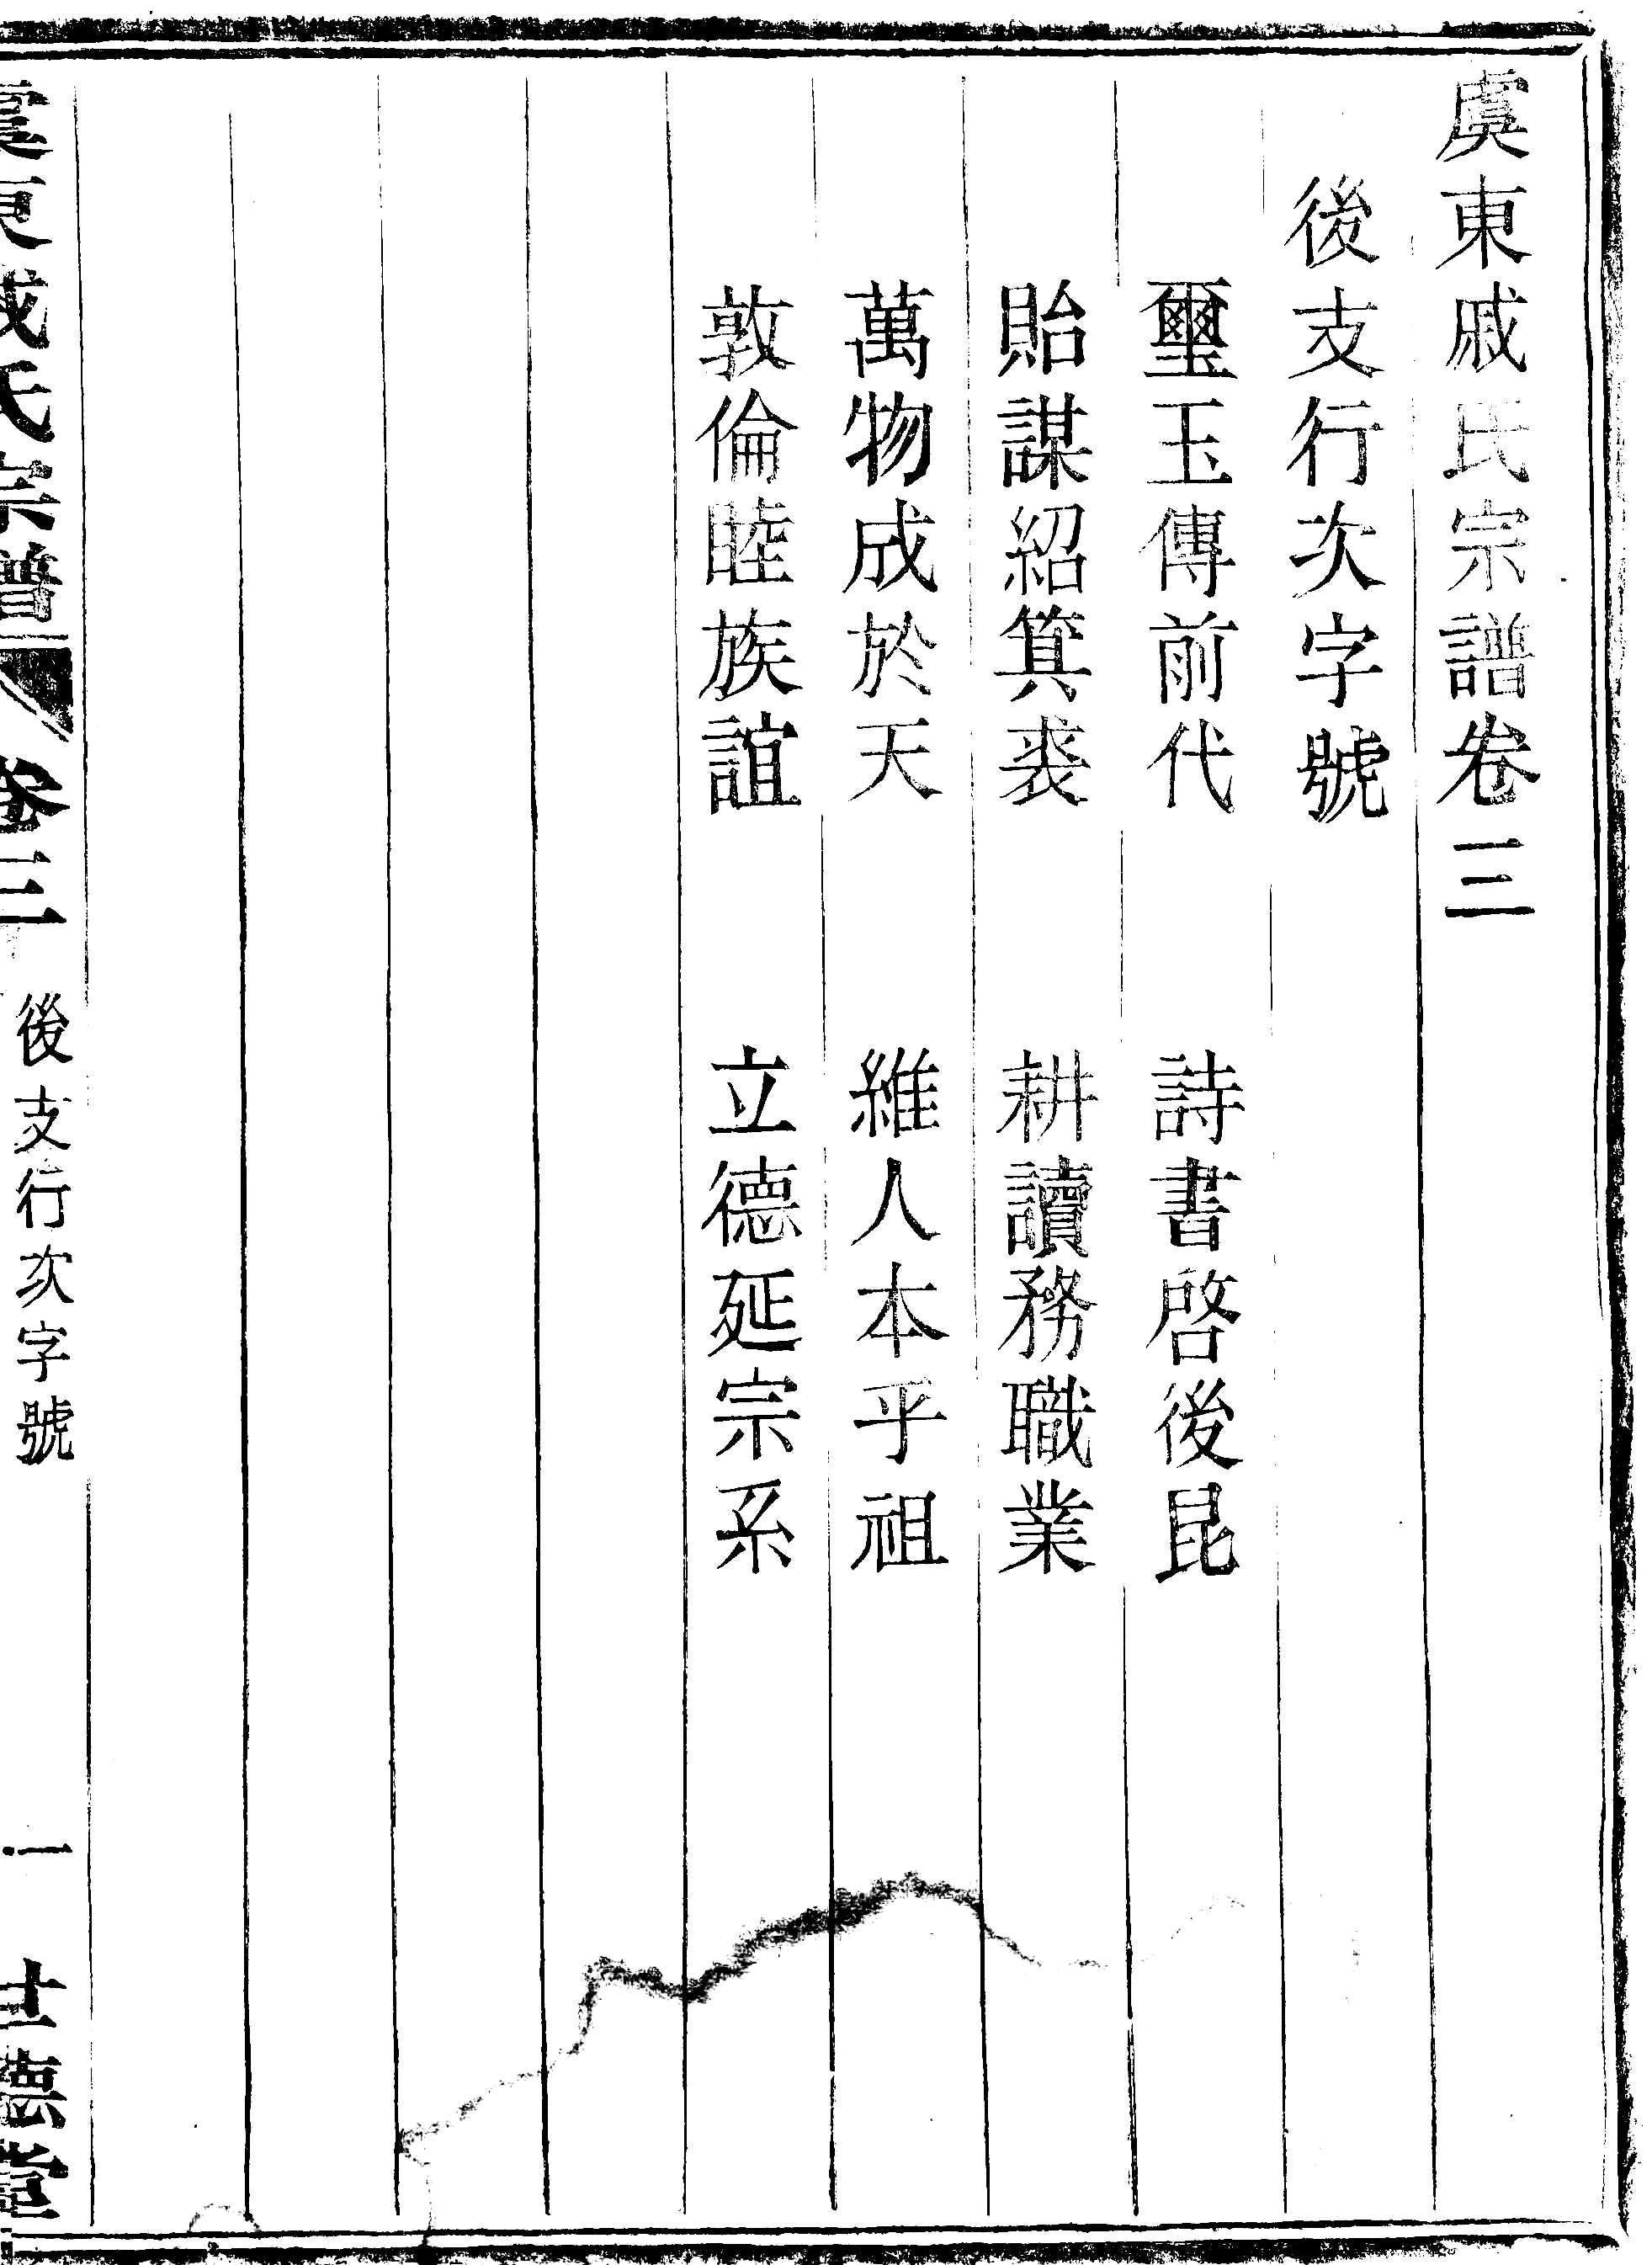 虞東戚氏宗譜卷三
後支行次字號
璽玉傳前代　詩書啓後昆
貽謀紹箕裘　耕讀務職業
萬物成於天　維人本乎祖
敦倫睦族誼　立德延宗系
虞東戚氏宗譜　卷三　後支行次字號　一　世德堂